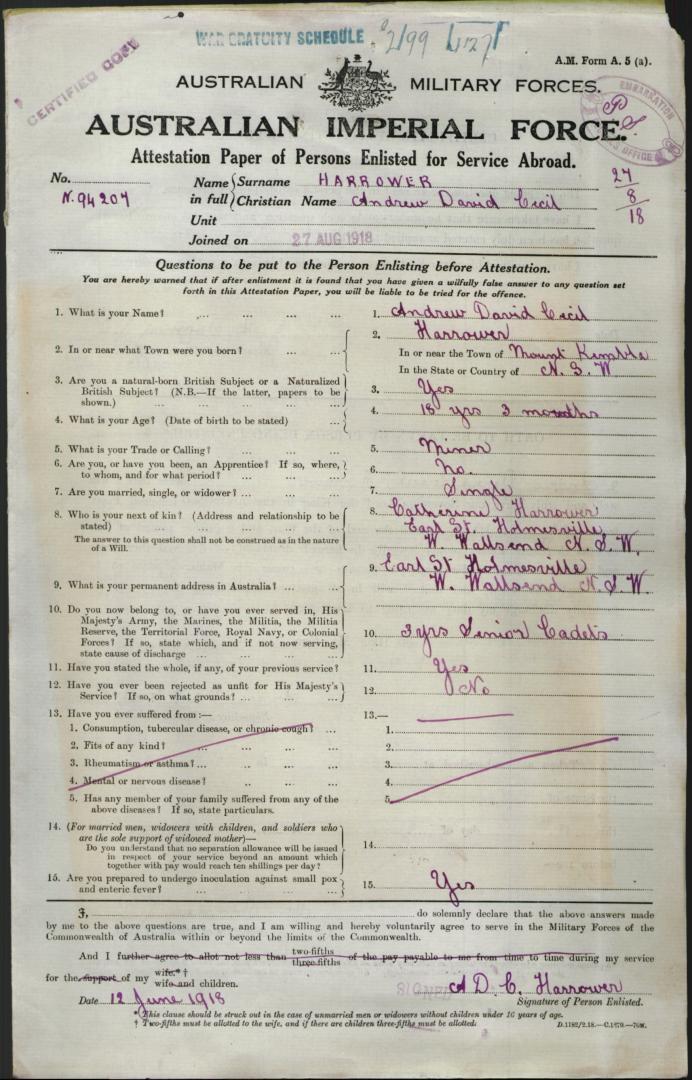 WAR GRATUITY SCHEDULE 2/99 1/27
CERTIFIED COPY
A.M. Form A. 5 (a).
AUSTRALIAN MILITARY FORCES.
EMBARKATION
OFFICE
P S
AUSTRALIAN IMPERIAL FORCE.
Attestation Paper of Persons Enlisted for Service Abroad.
No.
N. 94207
Name in full
Surname HARROWER
Christian Name Andrew David Cecil
27/8/18
Unit
Joined on 27 AUG 1918
Questions to be put to the Person Enlisting before Attestation.
You are hereby warned that if after enlistment it is found that you have given a wilfully false answer to any question set
forth in this Attestation Paper, you will be liable to be tried for the offence.
1. What is your Name? ... ... ... ...
1. Andrew David Cecil
Harrower
2. In or near what Town were you born? ... ...
2. In or near the Town of Mount Kembla
In the State or Country of N. S. W
3. Are you a natural-born British Subject or a Naturalized
British Subject? (N.B.—If the latter, papers to be
shown.) ... ... ... ...
3. Yes
4. What is your Age? (Date of birth to be stated) ...
4. 18 yrs 3 months
5. What is your Trade or Calling? ... ... ...
5. Miner
6. Are you, or have you been, an Apprentice? If so, where,
to whom, and for what period? ... ... ...
6. No.
7. Are you married, single, or widower? ... ... ...
7. Single
8. Who is your next of kin? (Address and relationship to be
stated) ... ... ... ...
The answer to this question shall not be construed as in the nature
of a Will.
8. Catherine Harrower
Earl St. Holmesville
W. Wallsend N. S. W.
9. What is your permanent address in Australia? ... ...
9. Earl St Holmesville
W. Wallsend N. S. W
10. Do you now belong to, or have you ever served in, His
Majesty's Army, the Marines, the Militia, the Militia
Reserve, the Territorial Force, Royal Navy, or Colonial
Forces? If so, state which, and if not now serving,
state cause of discharge ... ... ... ...
10. 3 yrs Senior Cadets
11. Have you stated the whole, if any, of your previous service?
11. Yes
12. Have you ever been rejected as unfit for His Majesty's
Service? If so, on what grounds? ... ... ...
12. No
13. Have you ever suffered from :—
13.—
1. Consumption, tubercular disease, or chronic cough? ...
1.
2. Fits of any kind? ... ... ... ...
2.
3. Rheumatism or asthma? ... ... ... ...
3.
4. Mental or nervous disease? ... ... ...
4.
5. Has any member of your family suffered from any of the
above diseases? If so, state particulars.
5.
14. (For married men, widowers with children, and soldiers who
are the sole support of widowed mother)—
Do you understand that no separation allowance will be issued
in respect of your service beyond an amount which
together with pay would reach ten shillings per day?
14.
15. Are you prepared to undergo inoculation against small pox
and enteric fever? ... ... ... ...
15. Yes
I, do solemnly declare that the above answers made
by me to the above questions are true, and I am willing and hereby voluntarily agree to serve in the Military Forces of the
Commonwealth of Australia within or beyond the limits of the Commonwealth.
And I further agree to allot not less than two-fifths three-fifths of the pay payable to me from time to time during my service
for the support of my wife.* † wife and children.
SIGNED A D. C. Harrower
Date 12 June 1918
Signature of Person Enlisted.
* This clause should be struck out in the case of unmarried men or widowers without children under 16 years of age.
† Two-fifths must be allotted to the wife, and if there are children three-fifths must be allotted.
D.1182/2.18.—C.1279.—70M.